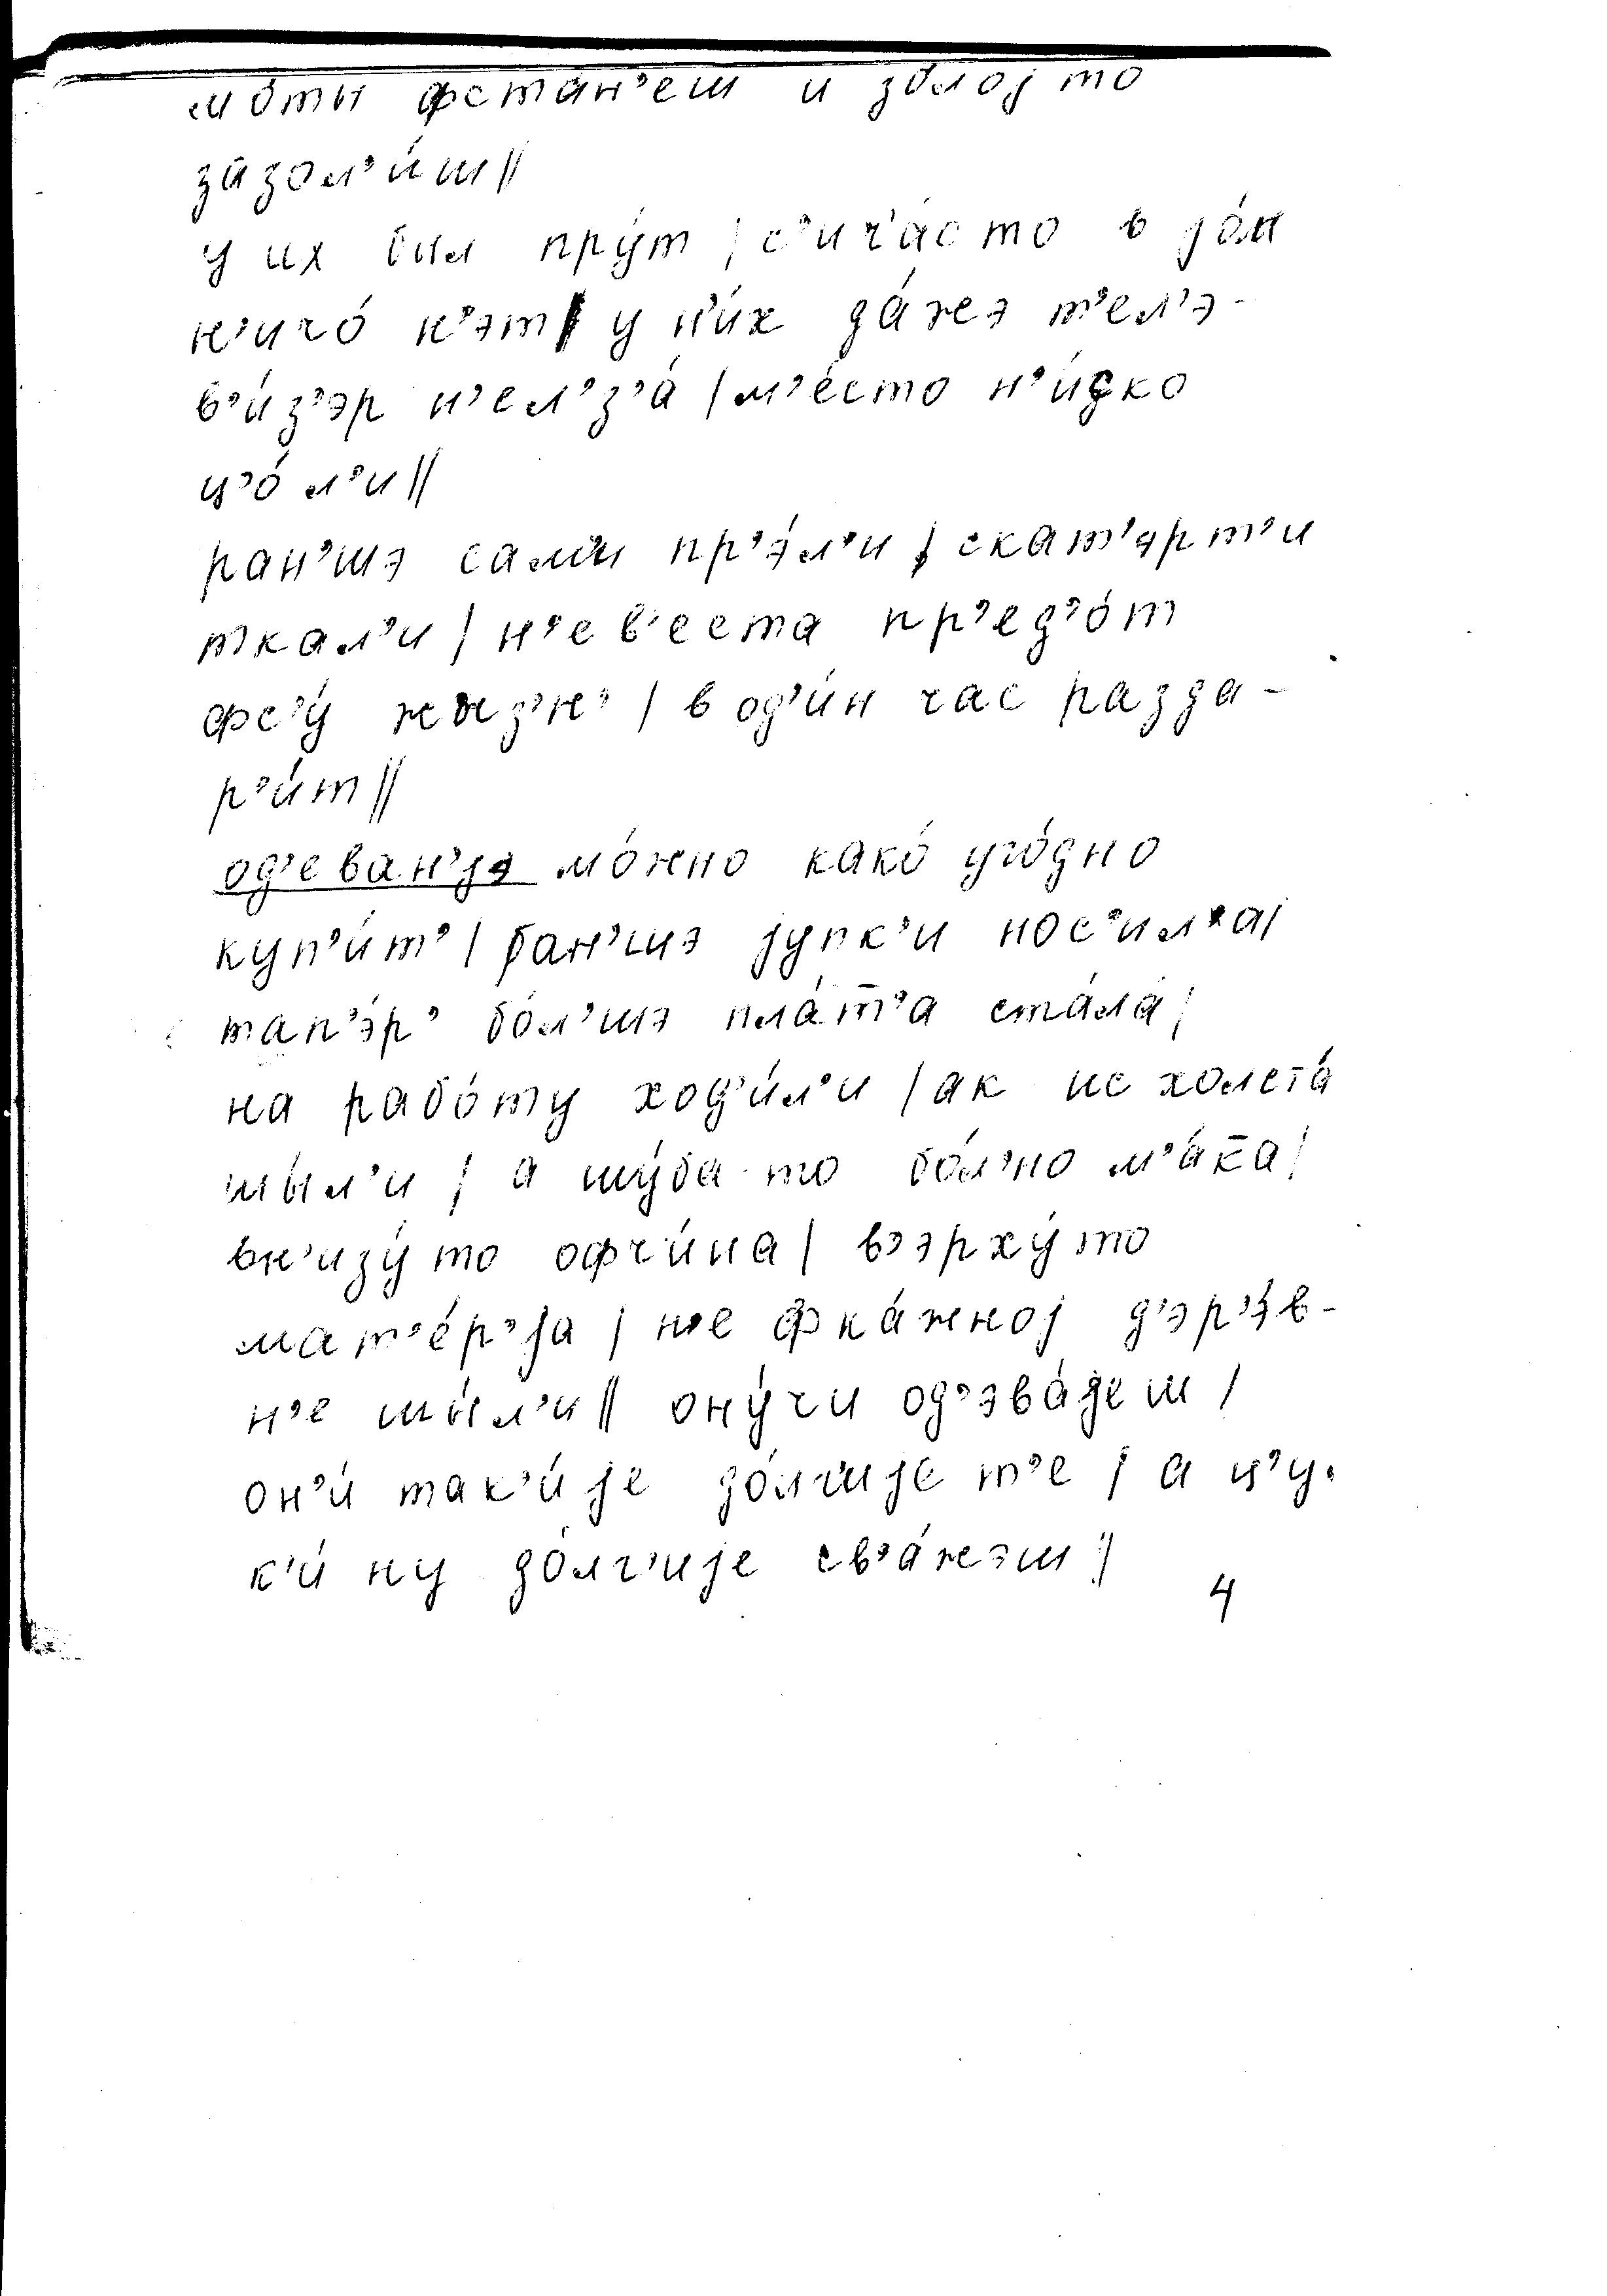 мо́ты фста́н'еш и зо́лоj то
зазол'и́ш||
у их был пру́т | с'ич'а́с то в jо́м
н'ичо́ н'эт | у н'и́х да́жэ т'ел'э-
в'и́з'эр н'ел'з'а́ | м'е́сто н'и́ско
ц'о́ л'и||
ран'шэ сами пр'э́л'и | скат'эрт'и
ткал'и | н'ев'еста пр'ед'о́т
фс'у́ жыз'н' | в од'и́н час разда-
р'и́т||
од'еван'jэ мо́жно како́ уго́дно
куп'и́т' | ран'шэ jупк'и нос'ил'а|
тап'э́р' бо́л'шэ пла́т̄'а ста́ла|
на рабо́ту ход'и́л'и | ак ис холста́
шы́л'и | а шу́ба-то бо́л'но м'а́к̄а|
вн'изу́ то офчи́на | в'эрху́ то
мат'е́р'jа | н'е ф ка́жноj д'эр'э́в-
н'е шы́л'и || ону́чи од'эва́jеш |
он'и́ так'и́jе до́лг'иjе т'е | а ц'у-
к'и́ ну до́лг'иjе св'а́жэш ||
4